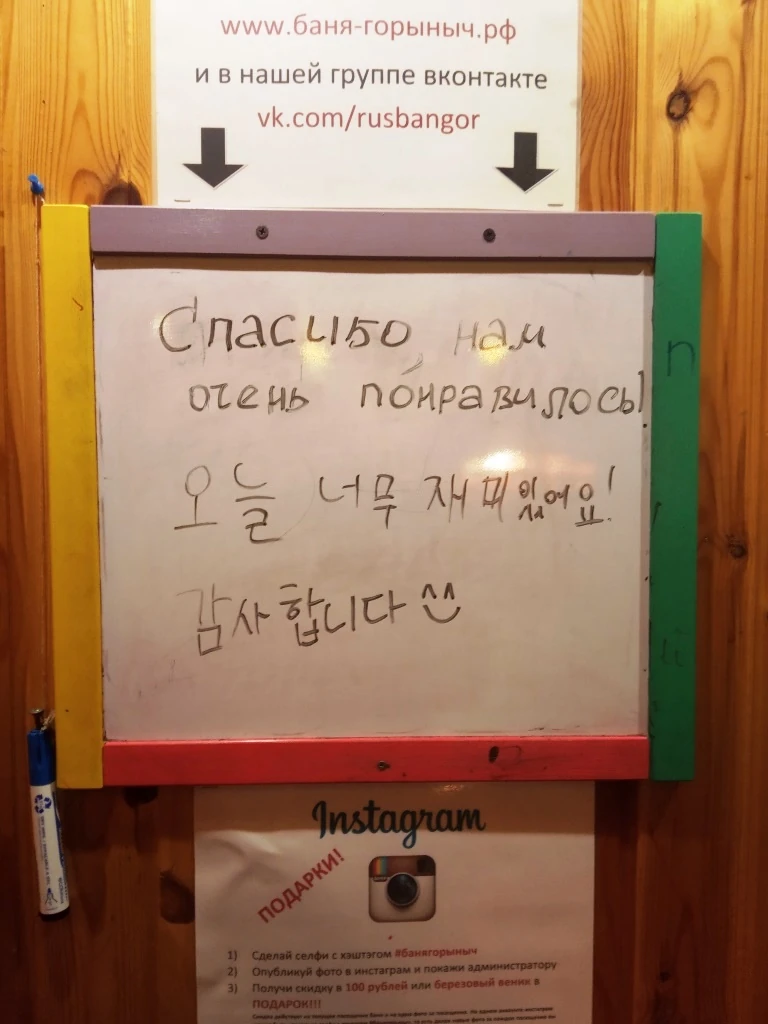 www.баня-горыныч.рф
и в нашей группе вконтакте
vk.com/rusbangor
Спасибо, нам
очень понравилось!
오늘 너무 재미있어요!
감사합니다 ^^
п
й
Instagram
ПОДАРКИ!
1) Сделай селфи с хэштэгом #банягорыныч
2) Опубликуй фото в инстаграм и покажи администратору
3) Получи скидку в 100 рублей или березовый веник в
ПОДАРОК!!!